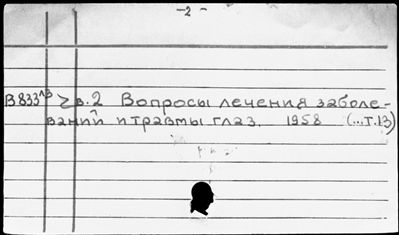 -2-
В833 в.2 Вопросы лечения заболе-
ваний и травмы глаз. 1958 (...т.13)